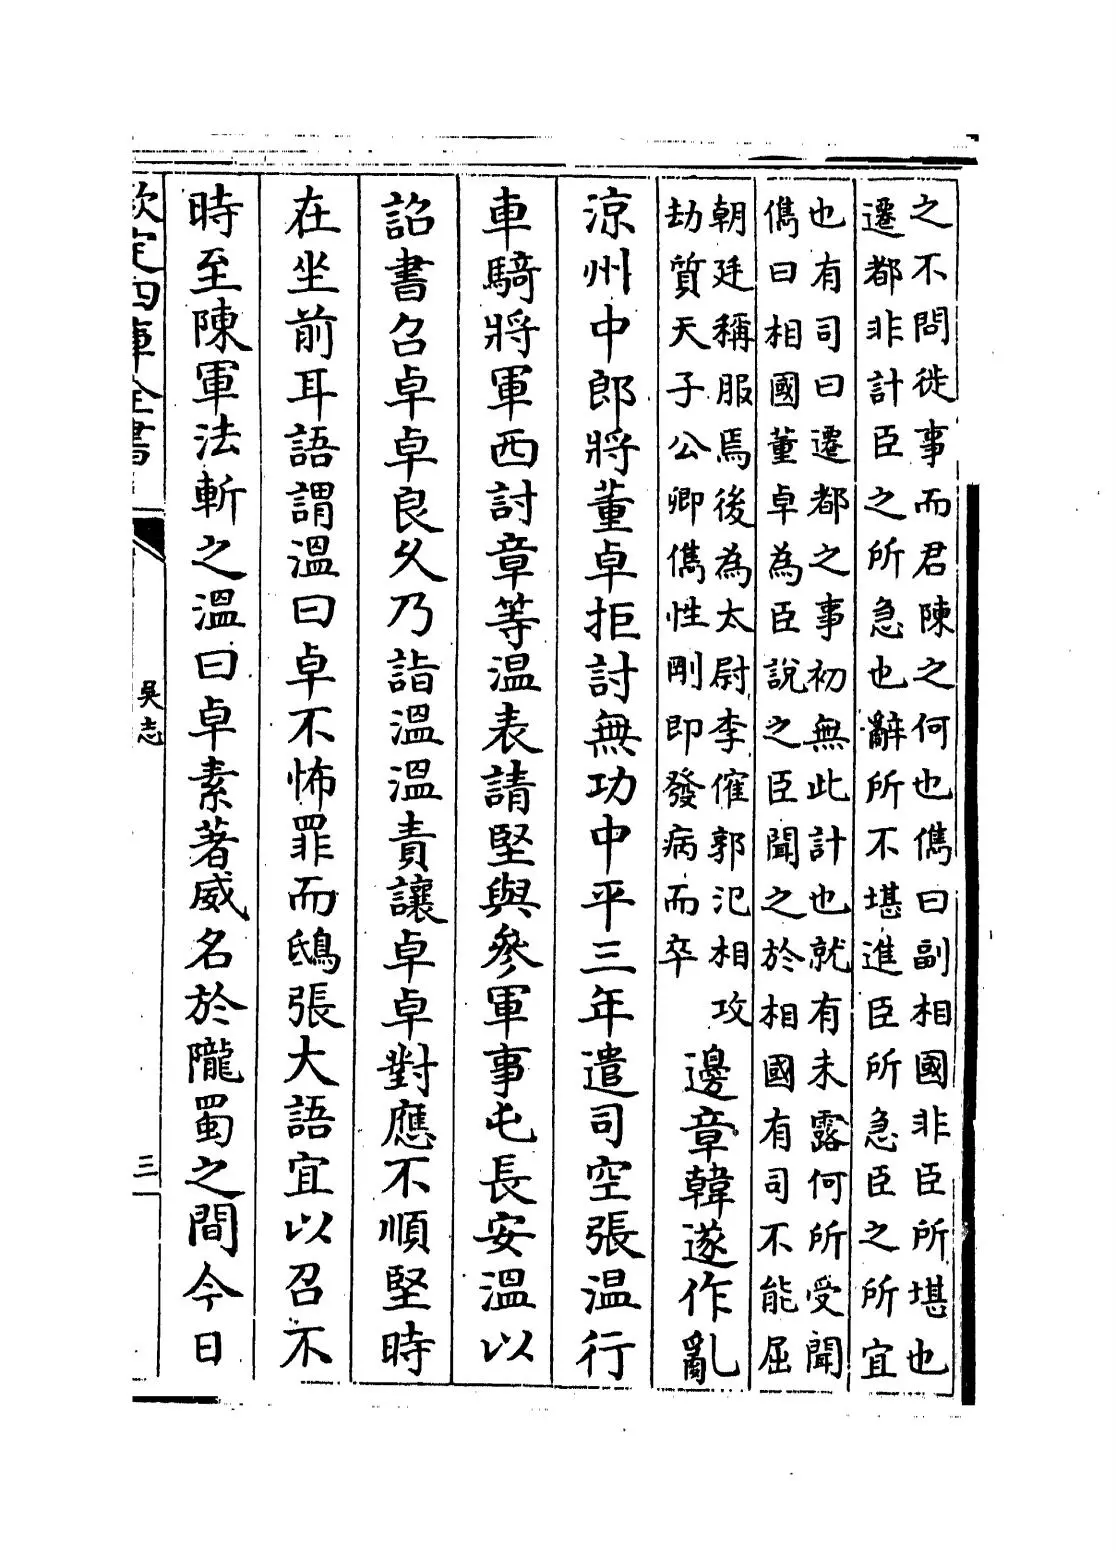 之不問徙事而君陳之何也儁曰副相國非臣所堪也
遷都非計臣之所急也辭所不堪進臣所急臣之所宜
也有司曰遷都之事初無此計也就有未露何所受聞
儁曰相國董卓為臣說之臣聞之於相國有司不能屈
朝廷稱服焉後為太尉李傕郭汜相攻
劫質天子公卿儁性剛即發病而卒
邊章韓遂作亂
涼州中郎將董卓拒討無功中平三年遣司空張温行
車騎將軍西討章等温表請堅與參軍事屯長安溫以
詔書召卓卓良久乃詣溫溫責讓卓卓對應不順堅時
在坐前耳語謂溫曰卓不怖罪而鴟張大語宜以召不
時至陳軍法斬之溫曰卓素著威名於隴蜀之間今日
欽定四庫全書
吳志
三